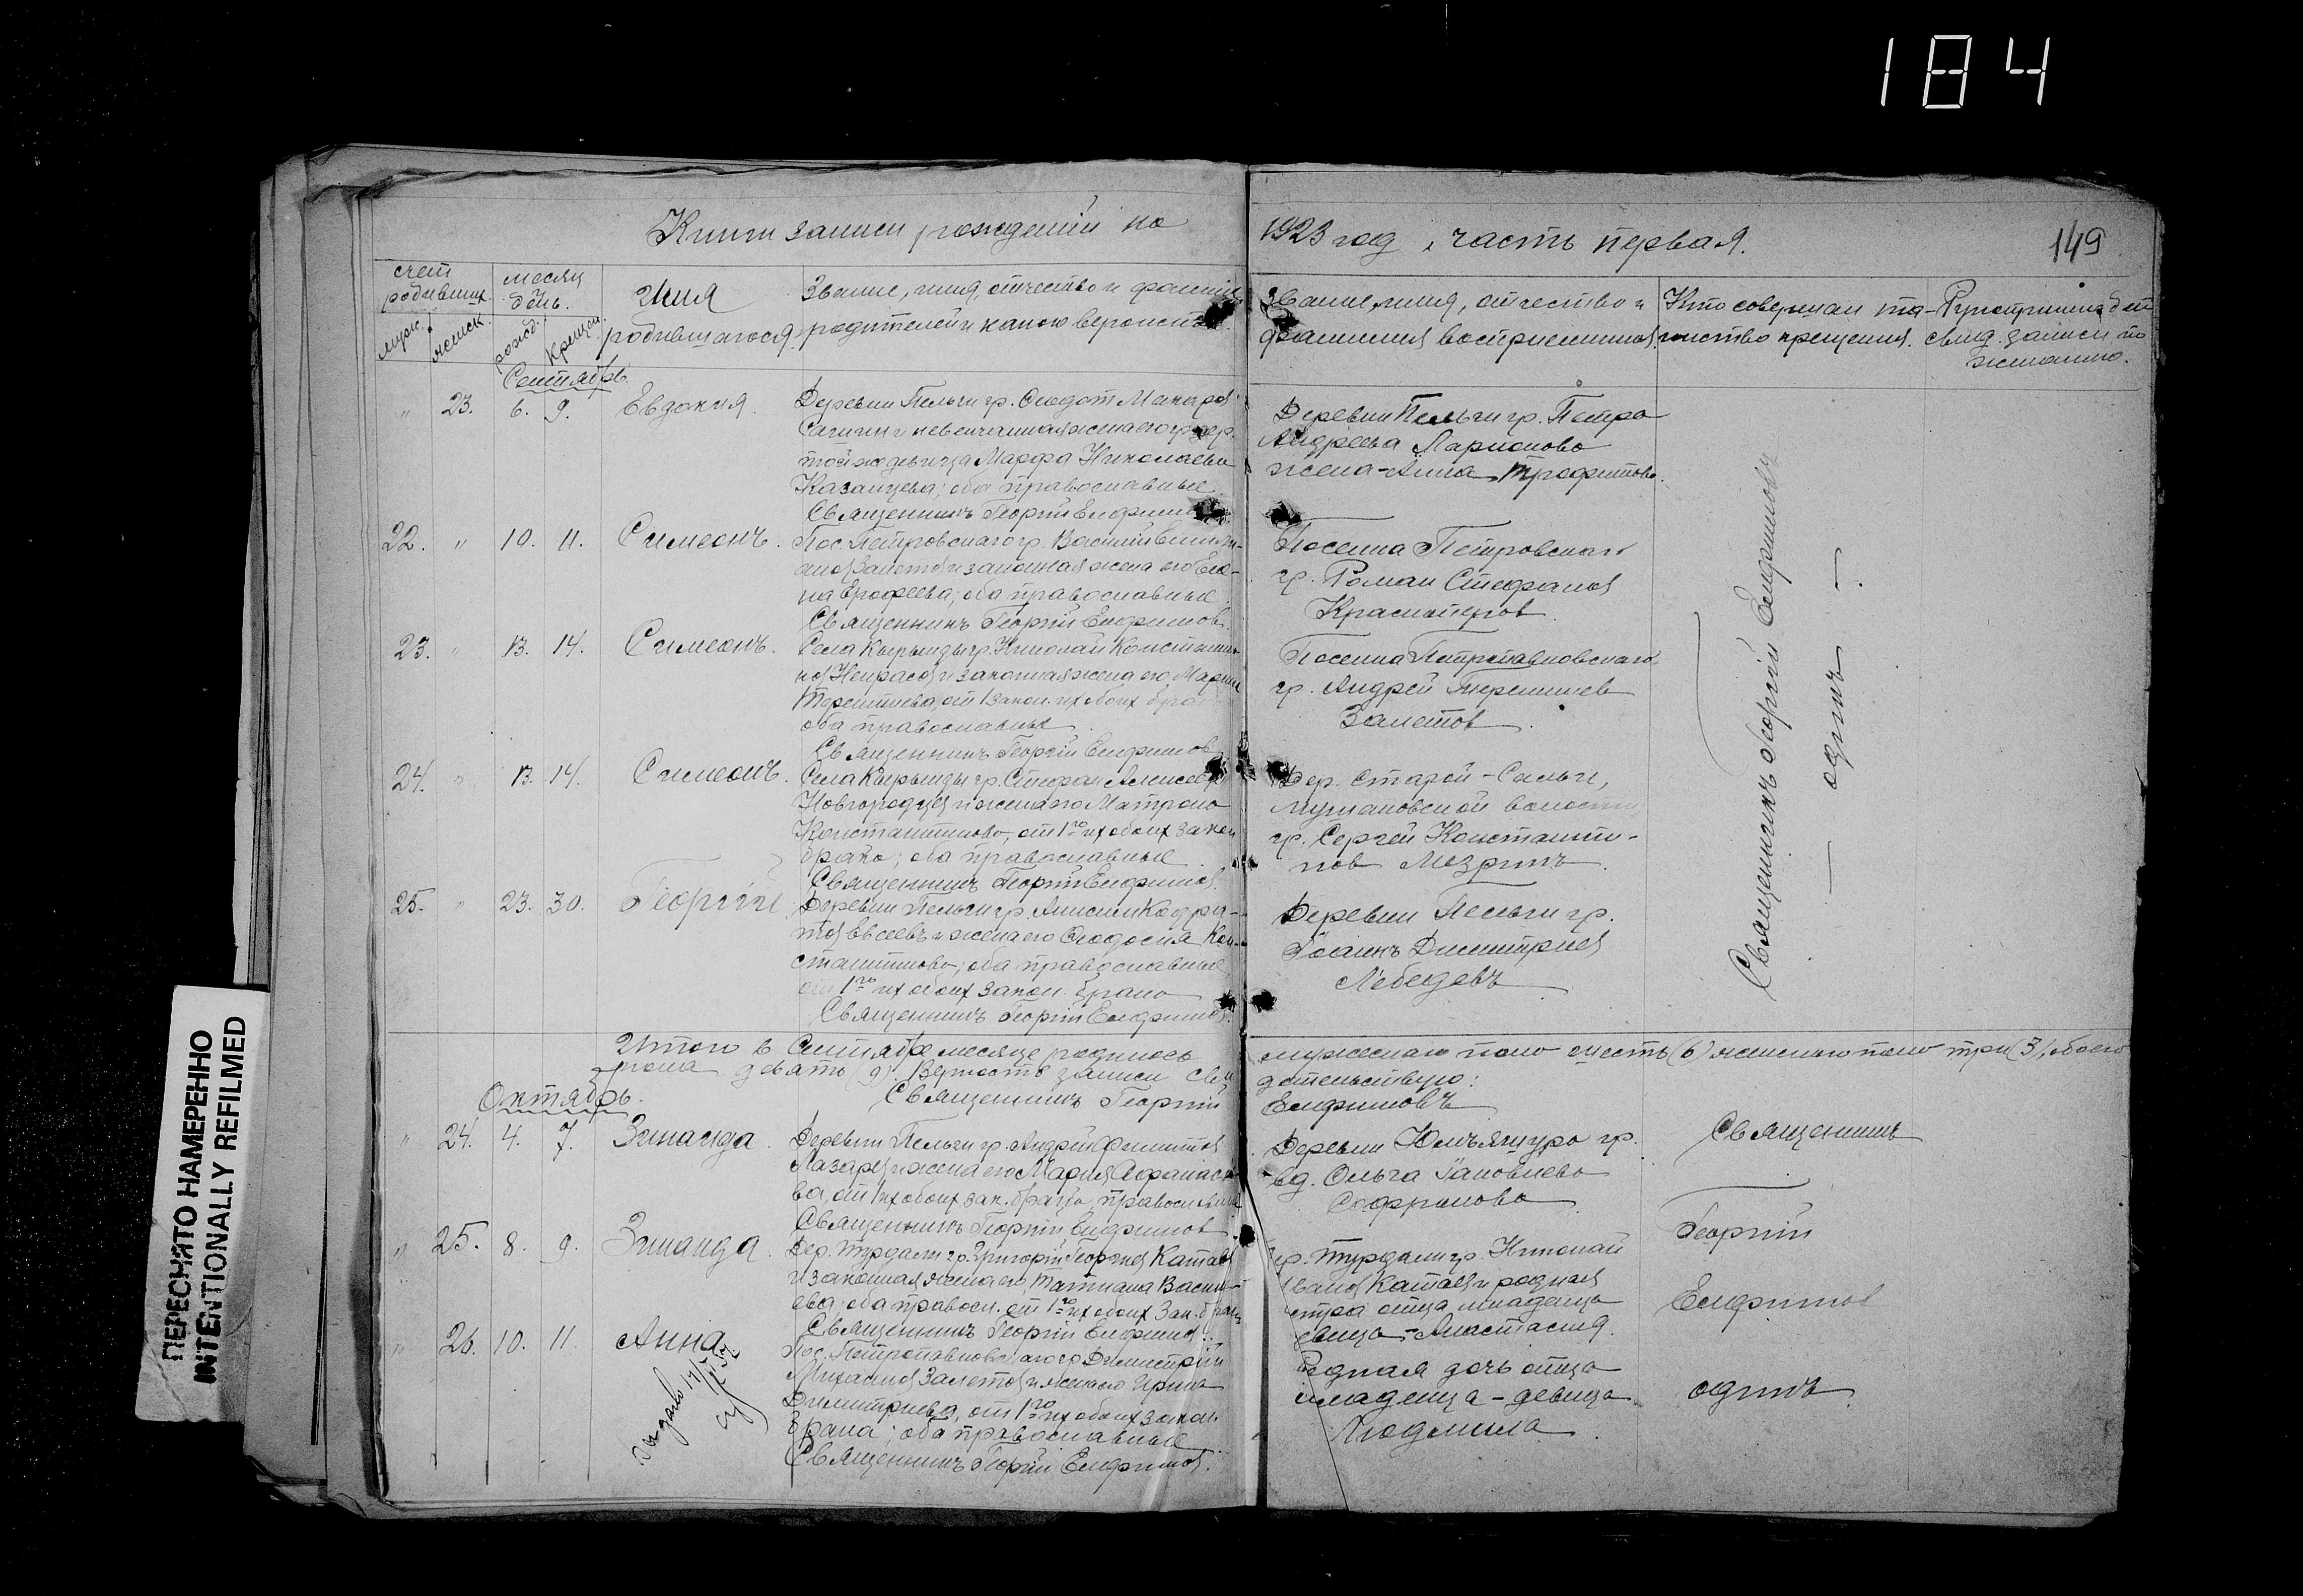 184
Книги записи рождений на 1923 год, часть первая.
149
счет родивших.
муж. женск.
месяц день.
рожд. крещен.
Имя родившагося
Звание, имя, отчество и фамилия
родителей и какого вероисп.
Звание, имя, отчество и
фамилия восприемников.
Кто совершал та-
инство крещения.
свид. записи по
желанию.
Сентябрь.
" 23. 6. 9. Евдокия.
Деревни Пельги гр. Феодот Макаров
и невенчанная жена его гр. дер.
той же девица Марфа Николаева
Казанцева; оба православные
Священникъ Георгий Елфимов
Деревни Пельги гр. Петра
Андреева Ларионова
жена - Анна Трофимова.
22. " 10. 11. Симеонъ.
Пос. Петровскаго гр. Василий
и законная жена его Еле-
на Ерофеева; оба православные
Священникъ Георгий Елфимов.
Поселка Петровскаго
гр. Роман Стефанов
Красноперов.
23. " 13. 14. Симеонъ.
Села Кырынды гр. Николай Константи-
нов Некрасов и законная жена его Мария
Терентиева, от 1 закон. их обоих брака
оба православные
Священникъ Георгий Елфимов
Поселка Петропавловскаго
гр. Андрей Терентиев
Залетов.
24. " 13. 14. Симеонъ.
Села Кырынды гр. Стефан Алексеев
Новгородцев и жена его Матрона
Константинова, от 1го их обоих закон
брака; оба православные.
Священникъ Георгий Елфимов.
Дер. Старой-Сальи,
волости
гр. Сергей Константи-
нов Мезринъ.
25. " 23. 30. Георгий
Деревни Пельги гр. Анисим Кодра-
тов Евсеевъ и жена его Феодосия Кон-
стантинова; оба православные
от 1го их обоих закон. брака
Священникъ Георгий Елфимов.
Деревни Пельги гр.
Иоаннъ Димитриев
Лебедевъ.
Священникъ Георгий Елфимовъ
— одинъ —.
Итого в Сентябре месяце родилось мужеского пола шесть (6) женского пола три (3), обоего
пола девять (9). Верность записи свидетельствую:
Священникъ Георгий Елфимовъ
Октябрь.
" 24. 4. 7. Зинаида.
Деревни Пельги гр. Андрей Филиппов
Лазарев и жена его Мария Афанасие-
ва, от 1 их обоих зак. брака, православные
Священникъ Георгий Елфимов.
Деревни гр.
вд. Ольга Иаковлева
Софронова
Священникъ
" 25. 8. 9. Зинаида.
Дер. Турдали гр. Григорий Георгиев Катаев
и законная жена его Татиана Васили-
ева; оба правосл. от 1го их обоих зак. брака
Священникъ Георгий Елфимов.
гр. Николай
Катаев и родная
сестра отца младенца
девица - Анастасия.
Георгий
Елфимов
" 26. 10. 11. Анна
Пос. Петропавловскаго гр. Димитрий
Михаилов Залетов и жена его Ирина
Димитриева, от 1го их обоих закон.
брака; оба православные
Священникъ Георгий Елфимов.
Родная дочь отца
младенца - девица
Людмила.
одинъ.
ПЕРЕСНЯТО НАМЕРЕННО
INTENTIONALLY REFILMED